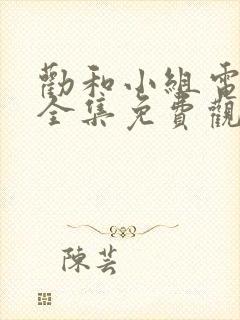 勸和小組電
全集免費觀
陳芸